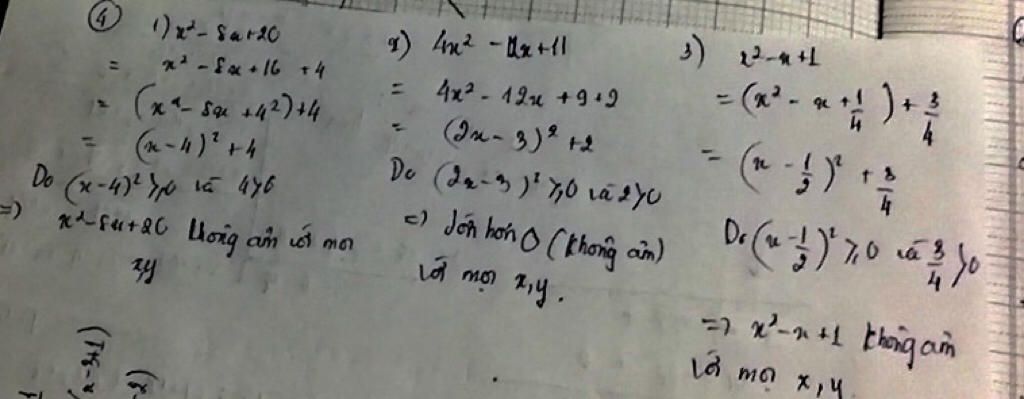 ④ 1) x² - 8x + 20
= x² - 8x + 16 + 4
= (x² - 8x + 4²) + 4
= (x - 4)² + 4
Do (x - 4)² ≥ 0 và 4 > 0
=> x² - 8x + 20 không âm với mọi
x, y
2) 4x² - 12x + 11
= 4x² - 12x + 9 + 2
= (2x - 3)² + 2
Do (2x - 3)² ≥ 0 và 2 > 0
=> lớn hơn 0 (không âm)
với mọi x, y.
3) x² - x + 1
= (x² - x + 1/4) + 3/4
= (x - 1/2)² + 3/4
Do (x - 1/2)² ≥ 0 và 3/4 > 0
=> x² - x + 1 không âm
với mọi x, y